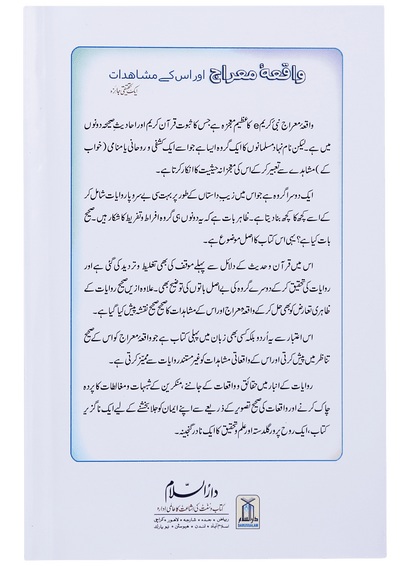 واقعۂ معراج اور اس کے مشاہدات
ایک تحقیقی جائزہ
واقعۂ معراج نبی کریم e کا عظیم معجزہ ہے جس کا ثبوت قرآن کریم اور احادیث صحیحہ دونوں
میں ہے۔ لیکن نام نہاد مسلمانوں کا ایک گروہ ایسا ہے جو اسے ایک کشفی و روحانی یا منامی (خواب
کے) مشاہدے سے تعبیر کر کے اس کی معجزانہ حیثیت کا انکار کرتا ہے۔
ایک دوسرا گروہ ہے جو اس میں زیب داستاں کے طور پر بہت سی بے سروپا روایات شامل کر
کے اسے کچھ کا کچھ بنا دیتا ہے۔ ظاہر بات ہے کہ یہ دونوں ہی گروہ افراط و تفریط کا شکار ہیں۔ صحیح
بات کیا ہے؟ یہی اس کتاب کا اصل موضوع ہے۔
اس میں قرآن و حدیث کے دلائل سے پہلے موقف کی بھی تغلیط و تردید کی گئی ہے اور
روایات کی تحقیق کر کے دوسرے گروہ کی بے اصل باتوں کی توضیح بھی۔ علاوہ ازیں صحیح روایات کے
ظاہری تعارض کو بھی حل کر کے واقعۂ معراج اور اس کے مشاہدات کا صحیح صحیح نقشہ پیش کیا گیا ہے۔
اس اعتبار سے یہ اُردو بلکہ کسی بھی زبان میں پہلی کتاب ہے جو واقعۂ معراج کو اس کے صحیح
تناظر میں پیش کرتی اور اس کے واقعاتی مشاہدات کو غیر مستند روایات سے ممیز کرتی ہے۔
روایات کے انبار میں حقائق و واقعات کے جاننے، منکرین کے شبہات و مغالطات کا پردہ
چاک کرنے اور واقعات کی صحیح تصویر کے ذریعے سے اپنے ایمان کو جلا بخشنے کے لیے ایک ناگزیر
کتاب، ایک روح پرور گلدستہ اور علم و تحقیق کا ایک نادر گنجینہ۔
دارالسلام
کتاب و سنت کی اشاعت کا عالمی ادارہ
ریاض • جدہ • شارجہ • لاہور • کراچی
اسلام آباد • لندن • ہیوسٹن • نیویارک
دارالسلام
DARUSSALAM